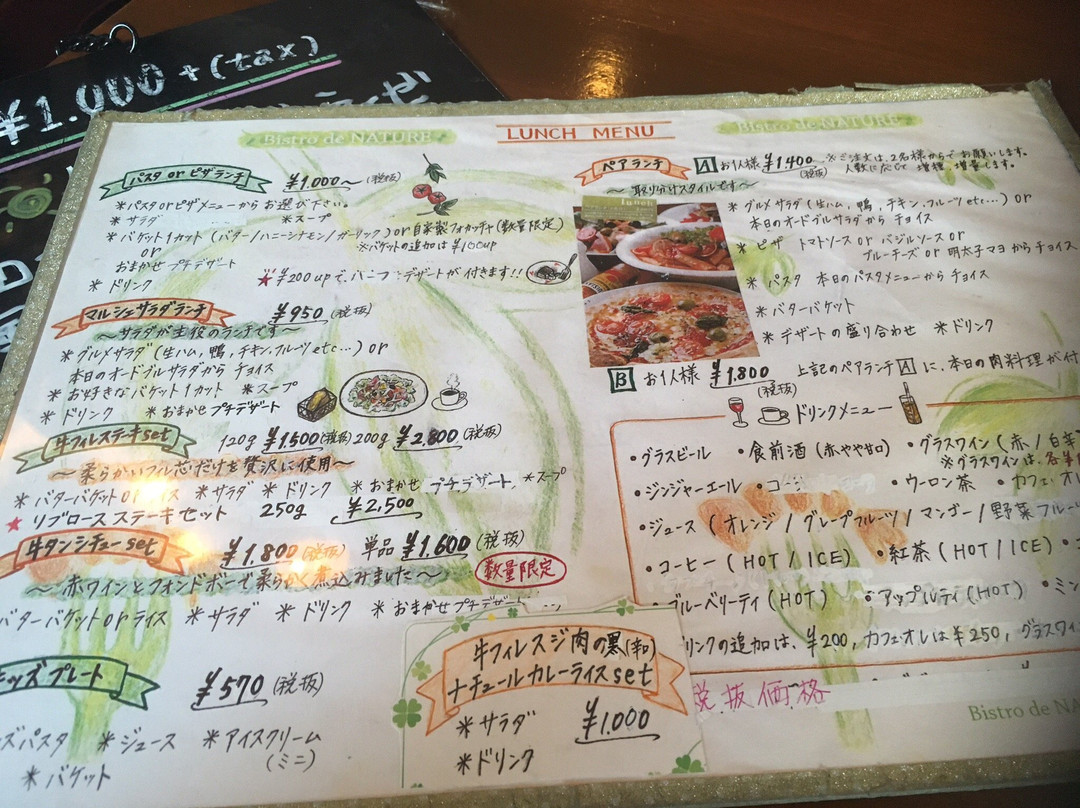 ¥1.000 +(tax)
Bistro de NATURE
LUNCH MENU
Bistro de NATURE
パスタ or ピザランチ ¥1.000〜(税抜)
*パスタorピザメニューからお選び下さい。
*サラダ *スープ
*バゲット1カット(バター/ハニーシナモン/ガーリック) or 自家製フォカッチャ(数量限定)
or ※バゲットの追加は¥100up
おまかせプチデザート
*ドリンク
★¥200upで、デザートが付きます!!
マルシェサラダランチ ¥950(税抜)
〜サラダが主役のランチです〜
*グルメサラダ(生ハム,鴨,チキン,フルーツetc...) or
本日のオードブルサラダから チョイス
*お好きなバゲット1カット *スープ
*ドリンク *おまかせプチデザート
牛フィレステーキset 120g ¥1.500(税抜) 200g ¥2,800(税抜)
〜柔らかいフィレ芯だけを贅沢に使用〜
*バターバゲットorライス *サラダ *ドリンク *おまかせプチデザート *スープ
★リブロースステーキセット 250g ¥2,500
牛タンシチューset ¥1.800(税抜) 単品¥1.600(税抜)
〜赤ワインとフォンドボーで柔らかく煮込みました〜 数量限定
バターバゲットorライス *サラダ *ドリンク *おまかせプチデザート
キッズプレート ¥570(税抜)
ズパスタ *ジュース *アイスクリーム
(ミニ)
*バゲット
牛フィレスジ肉の黒(辛口)
ナチュールカレーライスset
*サラダ ¥1.000
*ドリンク
ペアランチ A お1人様¥1400 ※ご注文は、2名様からでお願いします。
(税抜) 人数に応じて増種・増量します。
〜取り分けスタイルです〜
lunch
*グルメサラダ(生ハム,鴨,チキン,フルーツetc...) or
本日のオードブルサラダから チョイス
*ピザ トマトソース or バジルソース or
ブルーチーズ or 明太子マヨからチョイス
*パスタ 本日のパスタメニューから チョイス
*バターバゲット
*デザートの盛り合わせ *ドリンク
B お1人様 ¥1,800 上記のペアランチAに、本日の肉料理が付
(税抜)
ドリンクメニュー
・グラスビール ・食前酒(赤やや甘口) ・グラスワイン(赤/白
※グラスワインは、
・ジンジャーエール ・コーラ ・ウーロン茶 ・カフェオレ
・ジュース(オレンジ/グレープフルーツ/マンゴー/野菜フルー
・コーヒー(HOT/ICE) ・紅茶(HOT/ICE)
ブルーベリーティ(HOT) ・アップルティ(HOT) ・ミン
ドリンクの追加は、¥200,カフェオレは¥250,グラスワイ
税抜価格
Bistro de NA